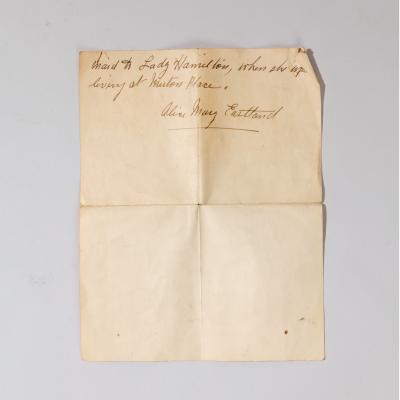 maid to Lady Hamilton, when she was
living at Merton Place.
Alice Mary Eastland